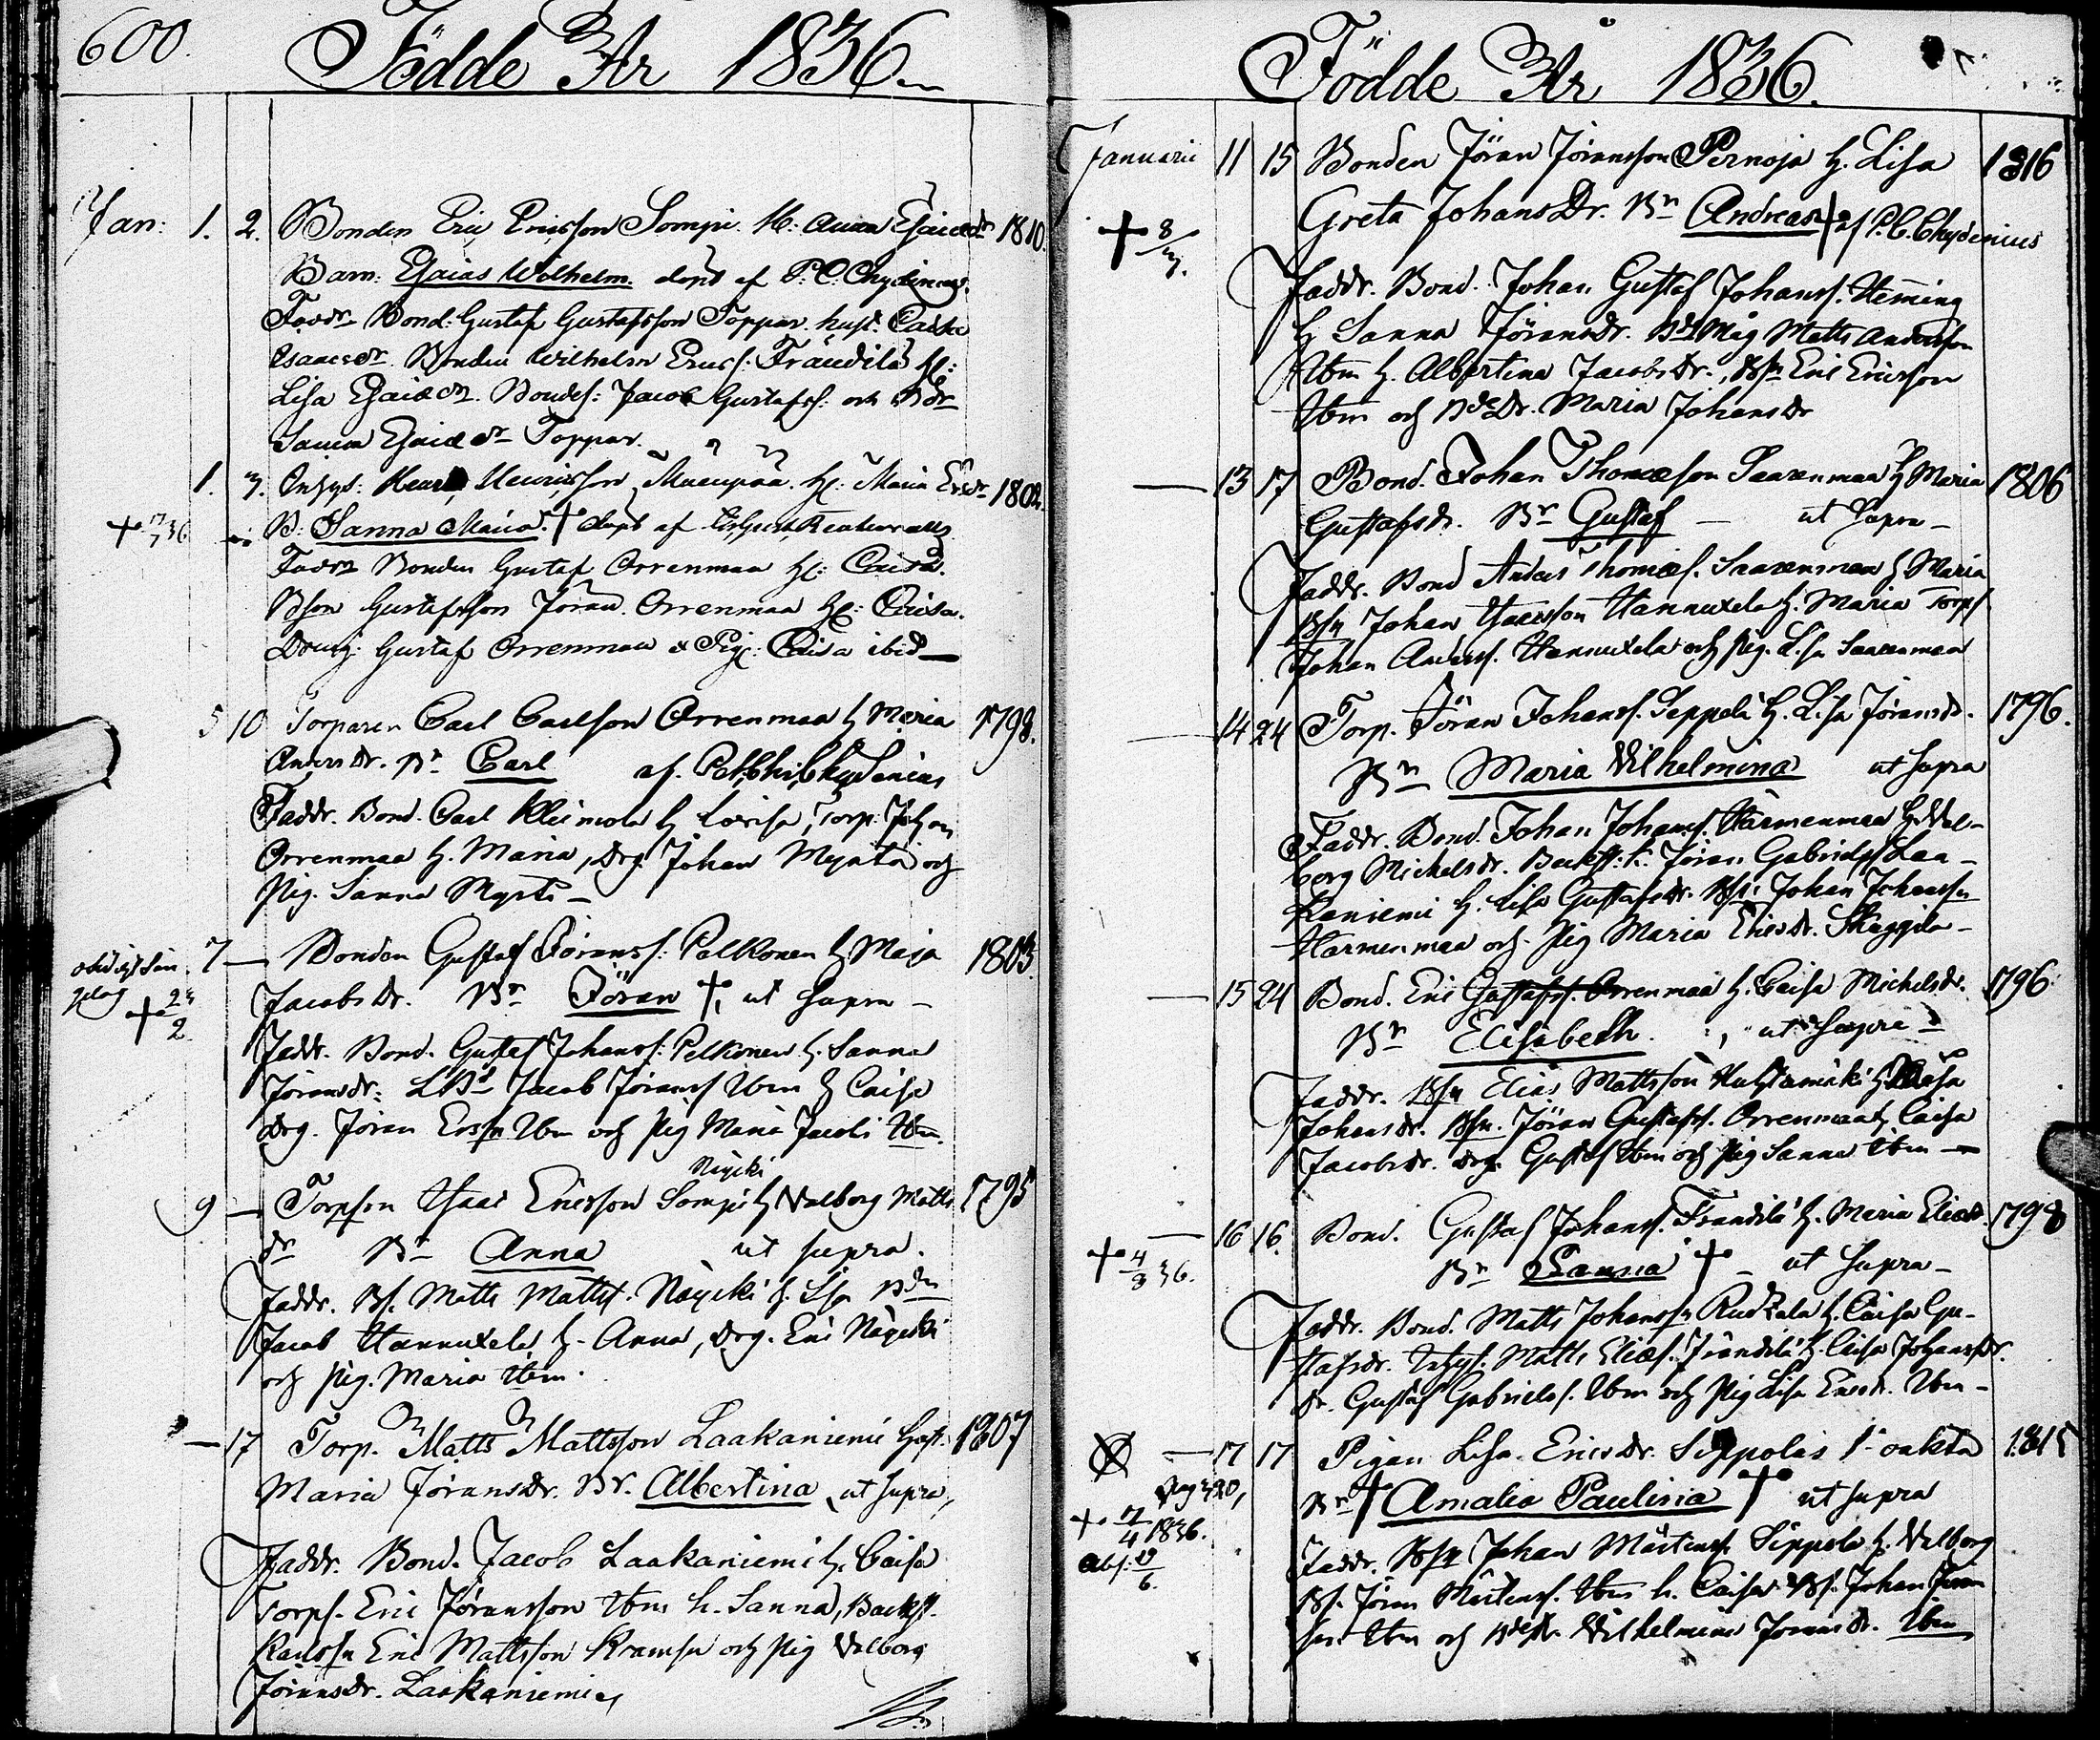 600. Födde År 1836.
Jan: 1. 2. Bonden Eric Ericsson Sompi H: Anna Esaiædr 1810.
Barn: Esaias Wilhelm. döpt af P. C. Chydenius.
Faddr Bond: Gustaf Gustafsson Toppar. hust. Caisa
Isaacsdr. Bonden Wilhelm Ericss: Frändilä H:
Lisa Esaiædr. Bondes: Jacob Gustafss: och Bdr
Sanna Esaiædr Toppar.
1. 3. Inhys: Henric Henricsson Mäenpää. H: Maria Ersdr 1802.
B: Sanna Maria. † döpt af
Faddr Bonden Gustaf Orrenmaa H: Caisa.
Bson Gustafsson Jöran Orrenmaa H: Caisa.
Dreng: Gustaf Orrenmaa & Pig: Caisa ibid
5 10 Torparen Carl Carlsson Orrenmaa h Maria 1798.
Andersdr. Bn Carl af. Chydenius
Faddr. Bond. Carl Kleimola h Lovisa, Torp: Johan
Orrenmaa h. Maria, Drg. Johan Myntti och
Pig. Sanna Mynti –
7 — Bonden Gustaf Göranss: Pelkonen h. Maja 1803.
Jacobsdr. Bn Jöran †, ut supra –
+ 24/2
Faddr. Bond. Gustaf Johanss: Pelkonen h. Sanna
Jöransdr: Jacob Jöranss Ibm h Caisa
Drg. Jöran Erssn Ibm och Pig Maria Jacobs Ibm.
Näycki
9 — Torpson Isaac Ericsson Sompi h Valborg Matts 1795
dr Bn Anna ut supra.
Faddr. Bs. Matts Mattss. Näycki h. Lisa Bdn
Jacob Hannuxela h. Anna, Drg. Eric Näycki
och Pig. Maria Ibm.
— 17 Torp. Matts Mattsson Laakaniemi Hust. 1807
Maria Jöransdr. Bn. Albertina ut supra,
Faddr. Bond. Jacob Laakaniemi h. Caisa
Torps. Eric Jöransson Ibm h. Sanna, Backst.
Karlssn Eric Mattsson Kramsu och Pig Valborg
Jöransdr. Laakaniemi
Födde År 1836.
Januarii 11 15 Bonden Jöran Jöransson Pernoja h. Lisa 1816
Greta Johansdr. Bn Andreas † af P. C. Chydenius
+ 8/3.
Faddr. Bond. Johan Gustaf Johanss. Heming
h Sanna Jöransdr. Bds Måg Matts Andersson
Ibm h. Albertina Jacobsdr., Bsn Eric Ericsson
Ibm och Bdedr. Maria Johansdr
— 13 17 Bond. Johan Thomæson Saarenmaa h Maria 1806
Gustafsdr. Bn Gustaf – ut supra –
Faddr. Bond Anders Thomæs. Saarenmaa h Maria
Bsn Johan Isacsson Hannuxela h. Maria Torps
Johan Anderss. Hannuxela och Pig. Lisa Saarenmaa
— 14 24 Torp. Jöran Johanss. Seppelä h. Lisa Jöransdr. 1796.
Bn Maria Vilhelmina ut supra
Faddr. Bond. Johan Johanss. Harmenmaa h Val-
borg Michelsdr. Jöran Gabrielss Laa-
kaniemi h. Lisa Gustafsdr. Bsn: Johan Johanssn
Harmenmaa och Pig Maria Ericsdr. Skaggila –
— 15 24 Bond. Eric Gustafss. Orrenmaa h. Caisa Michelsdr. 1796.
Bn Elisabeth. ut supra –
Faddr. Bsn Elias Mattsson h Maja
Johansdr. Bsn. Jöran Gustafss. Orrenmaa h. Caisa
Jacobsdr. Drg. Gustaf Ibm och Pig Sanna Ibm —
— 16 16. Bond. Gustaf Johanss. Frändilä h. Maria Eliædr. 1798
+ 4/8 36. Bn Sanna † – ut supra –
Faddr. Bond. Matts Johanssn Ruckala h. Caisa Gu-
stafsdr. Inhys. Matts Eliæs. Frändilä h. Caisa Johansdr.
Dr. Gustaf Gabrielss. Ibm och Pig Lisa Ericsdr. Ibm –
— 17 17 Pigan Lisa Ericsdr. Seppoläs 1 oäkta 1815
Bn † Amalia Paulina † ut supra
+ 17/4 1836.
Abs. 19/6.
Faddr. Bsn Johan Mårtenss. Sippola h. Valborg
Bs. Jöran Mårtenss. Ibm h. Caisa. Bs. Johan Jöran
son Ibm och Bdedr. Vilhelmina Jöransdr. Ibm